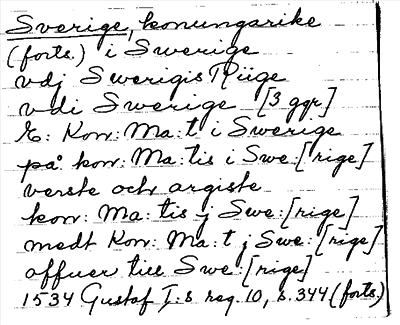 Sverige, konungarike
(forts.) i Swerige
vdj Swerigis Rüge
vdi Swerige [3 ggr]
E: Kon: Ma:t i Swerige
på kon: Ma:tis i Swe:[rige]
verste och argiste
kon: Ma:tis j Swe:[rige]
medt Kon: Ma:t j Swe:[rige]
offuer till Swe:[rige]
1534 Gustaf I:s reg. 10, s. 344 (forts.)